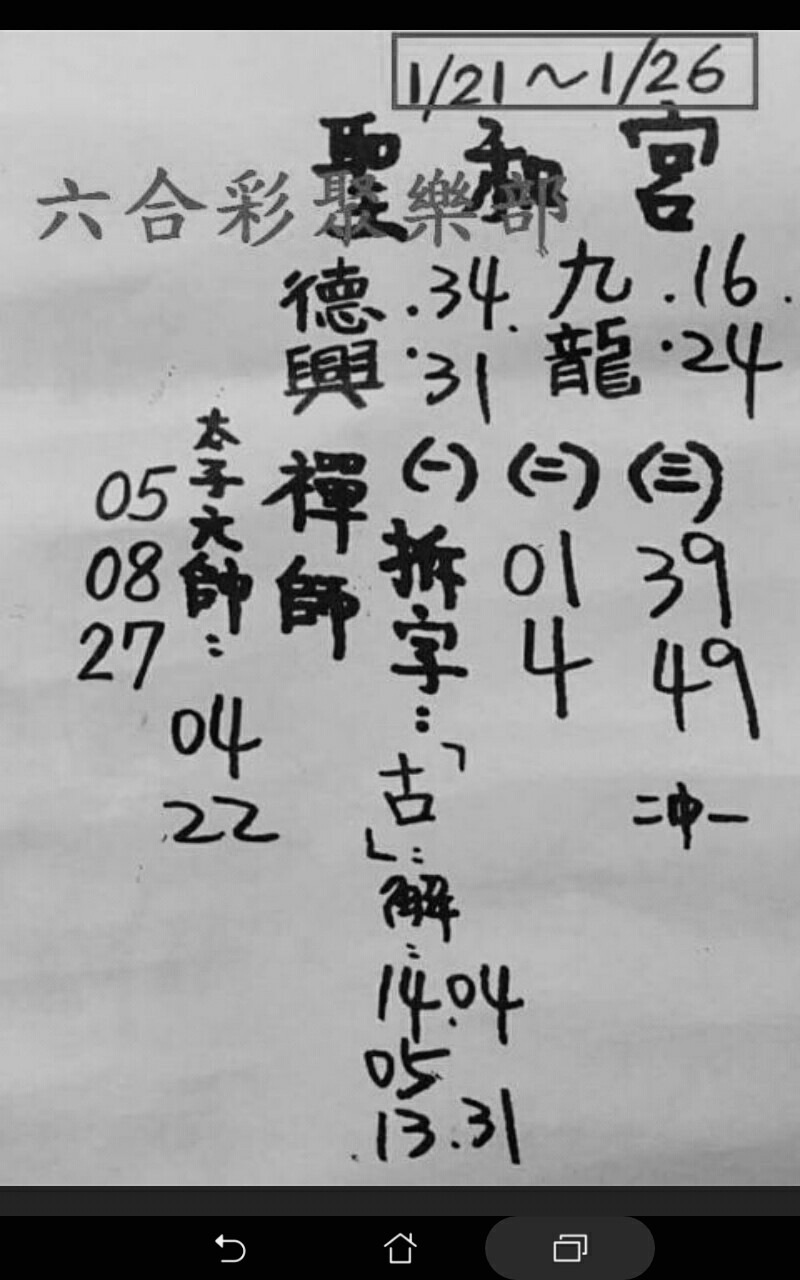 1/21～1/26
聖和宮
六合彩聚樂部
九龍 .16.
.24
德興 .34.
.31
禪師
(一) (二) (三)
拆字：
「古」：
解：
14.04
05
.13.31
01
4
39
49
二中一
太子元帥：
05
08
27
04
22